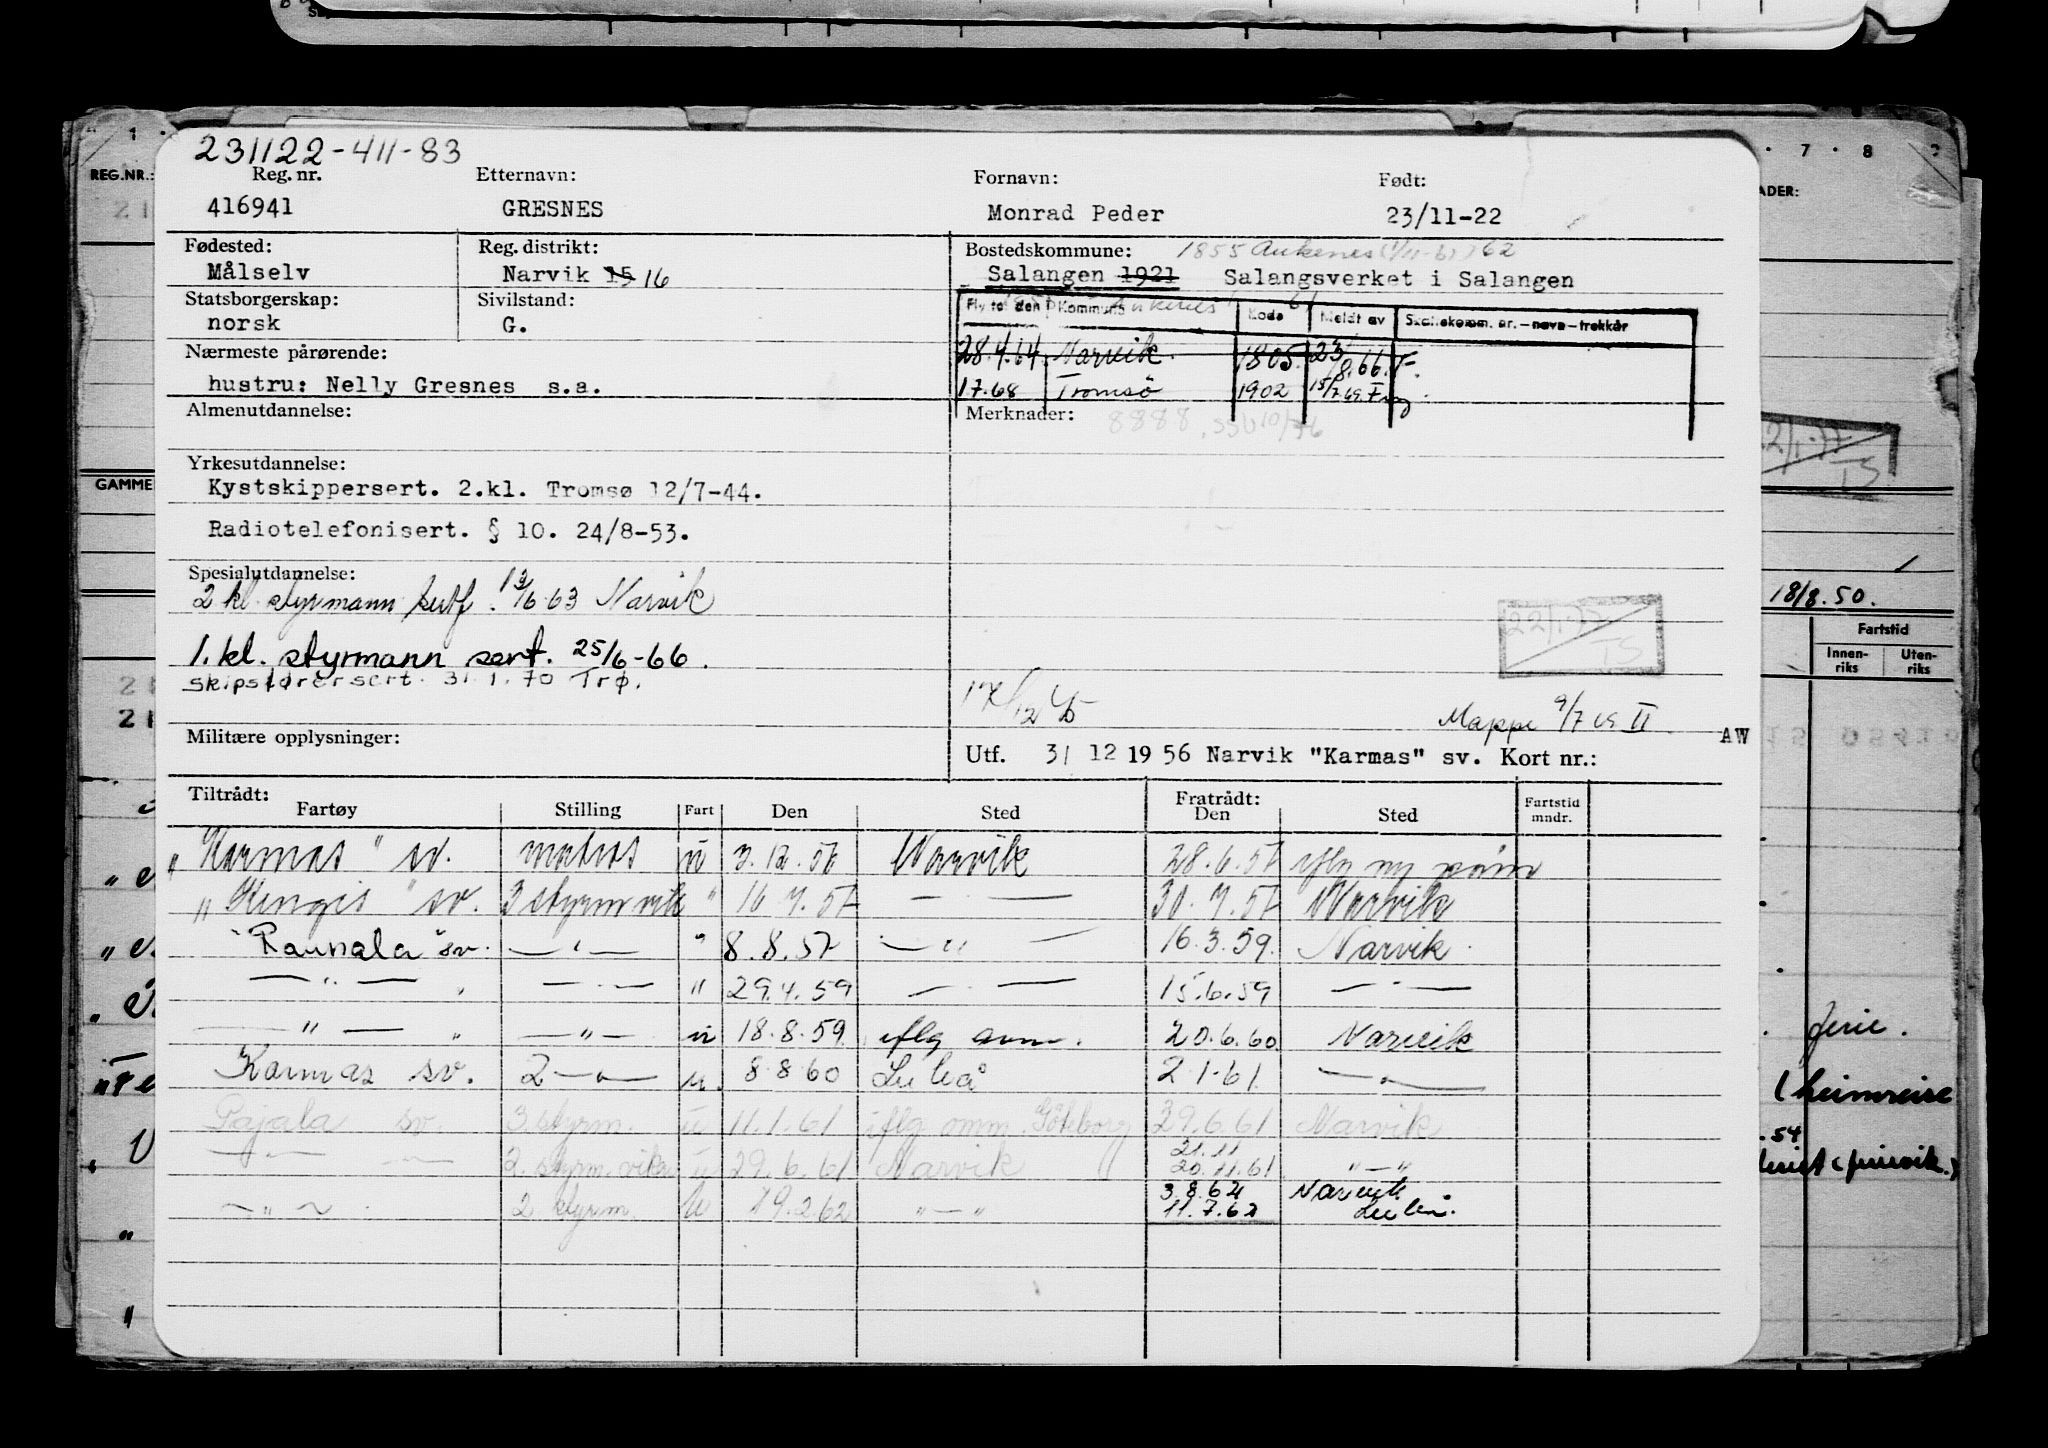 231122-411-83
Reg. nr. Etternavn: Fornavn: Født:
416941 GRESNES Monrad Peder 23/11-22
Fødested: Reg. distrikt: Bostedskommune: 1855 Ankenes (1/11-61) 62
Målselv Narvik 15 16 Salangen 1921 Salangsverket i Salangen
Statsborgerskap: Sivilstand:
norsk G.
Flyttet den Kommune Kode Meldt av Skattekomm. nr. – navn – trekkår
28.4.64. Narvik. 1805. 23/8.66.F.
Nærmeste pårørende:
hustru: Nelly Gresnes s.a.
1.7.68 Tromsö 1902 15/7.69.
Almenutdannelse: Merknader: 8888
Yrkesutdannelse:
Kystskippersert. 2.kl. Tromsø 12/7-44.
Radiotelefonisert. § 10. 24/8-53.
Spesialutdannelse:
2 kl. styrmann sertf. 13/6 63 Narvik
1. kl. styrmann sert. 25/6-66.
Skipsførersert. 31.1.70 Trø.
22/1-77
TS
Mappe 9/7 69 II
Militære opplysninger: AW
Utf. 31 12 19 56 Narvik "Karmas" sv. Kort nr.:
Tiltrådt: Fratrådt:
Fartøy Stilling Fart Den Sted Den Sted Fartstid mndr.
"Karmas" sv. matros u 3.12.56 Narvik 28.6.57 iflg ny mønn
"Kengis" sv. 3 styrm vik " 16.7.57 — — 30.7.57 Narvik
"Raunala" sv. — " — " 8.8.57 — " — 16.3.59. Narvik.
— " — " — " — " 29.4.59 — " — 15.6.59 — " —
— " — " — " — u 18.8.59. iflg avm. 20.6.60. Narvik
Karmas sv. 2 — " — u. 8.8.60 Luleå 2.1.61. — " —
Pajala sv. 3 styrm. u 11.1.61 iflg omm. Göteborg 29.6.61 Narvik
— " — " — 2. styrm. vikar u 29.6.61 Narvik 21.11 20.11.61 " — "
— " — 2 styrm. u 19.2.62 " — " 3.8.62 Narvik
11.7.62 Luleå.
REG.NR.:
GAMME
1
7 · 8
ADER:
22/1-77
TS
18/8.50.
Fartstid
Innen-riks Uten-riks
ferie.
(heimreise
.54